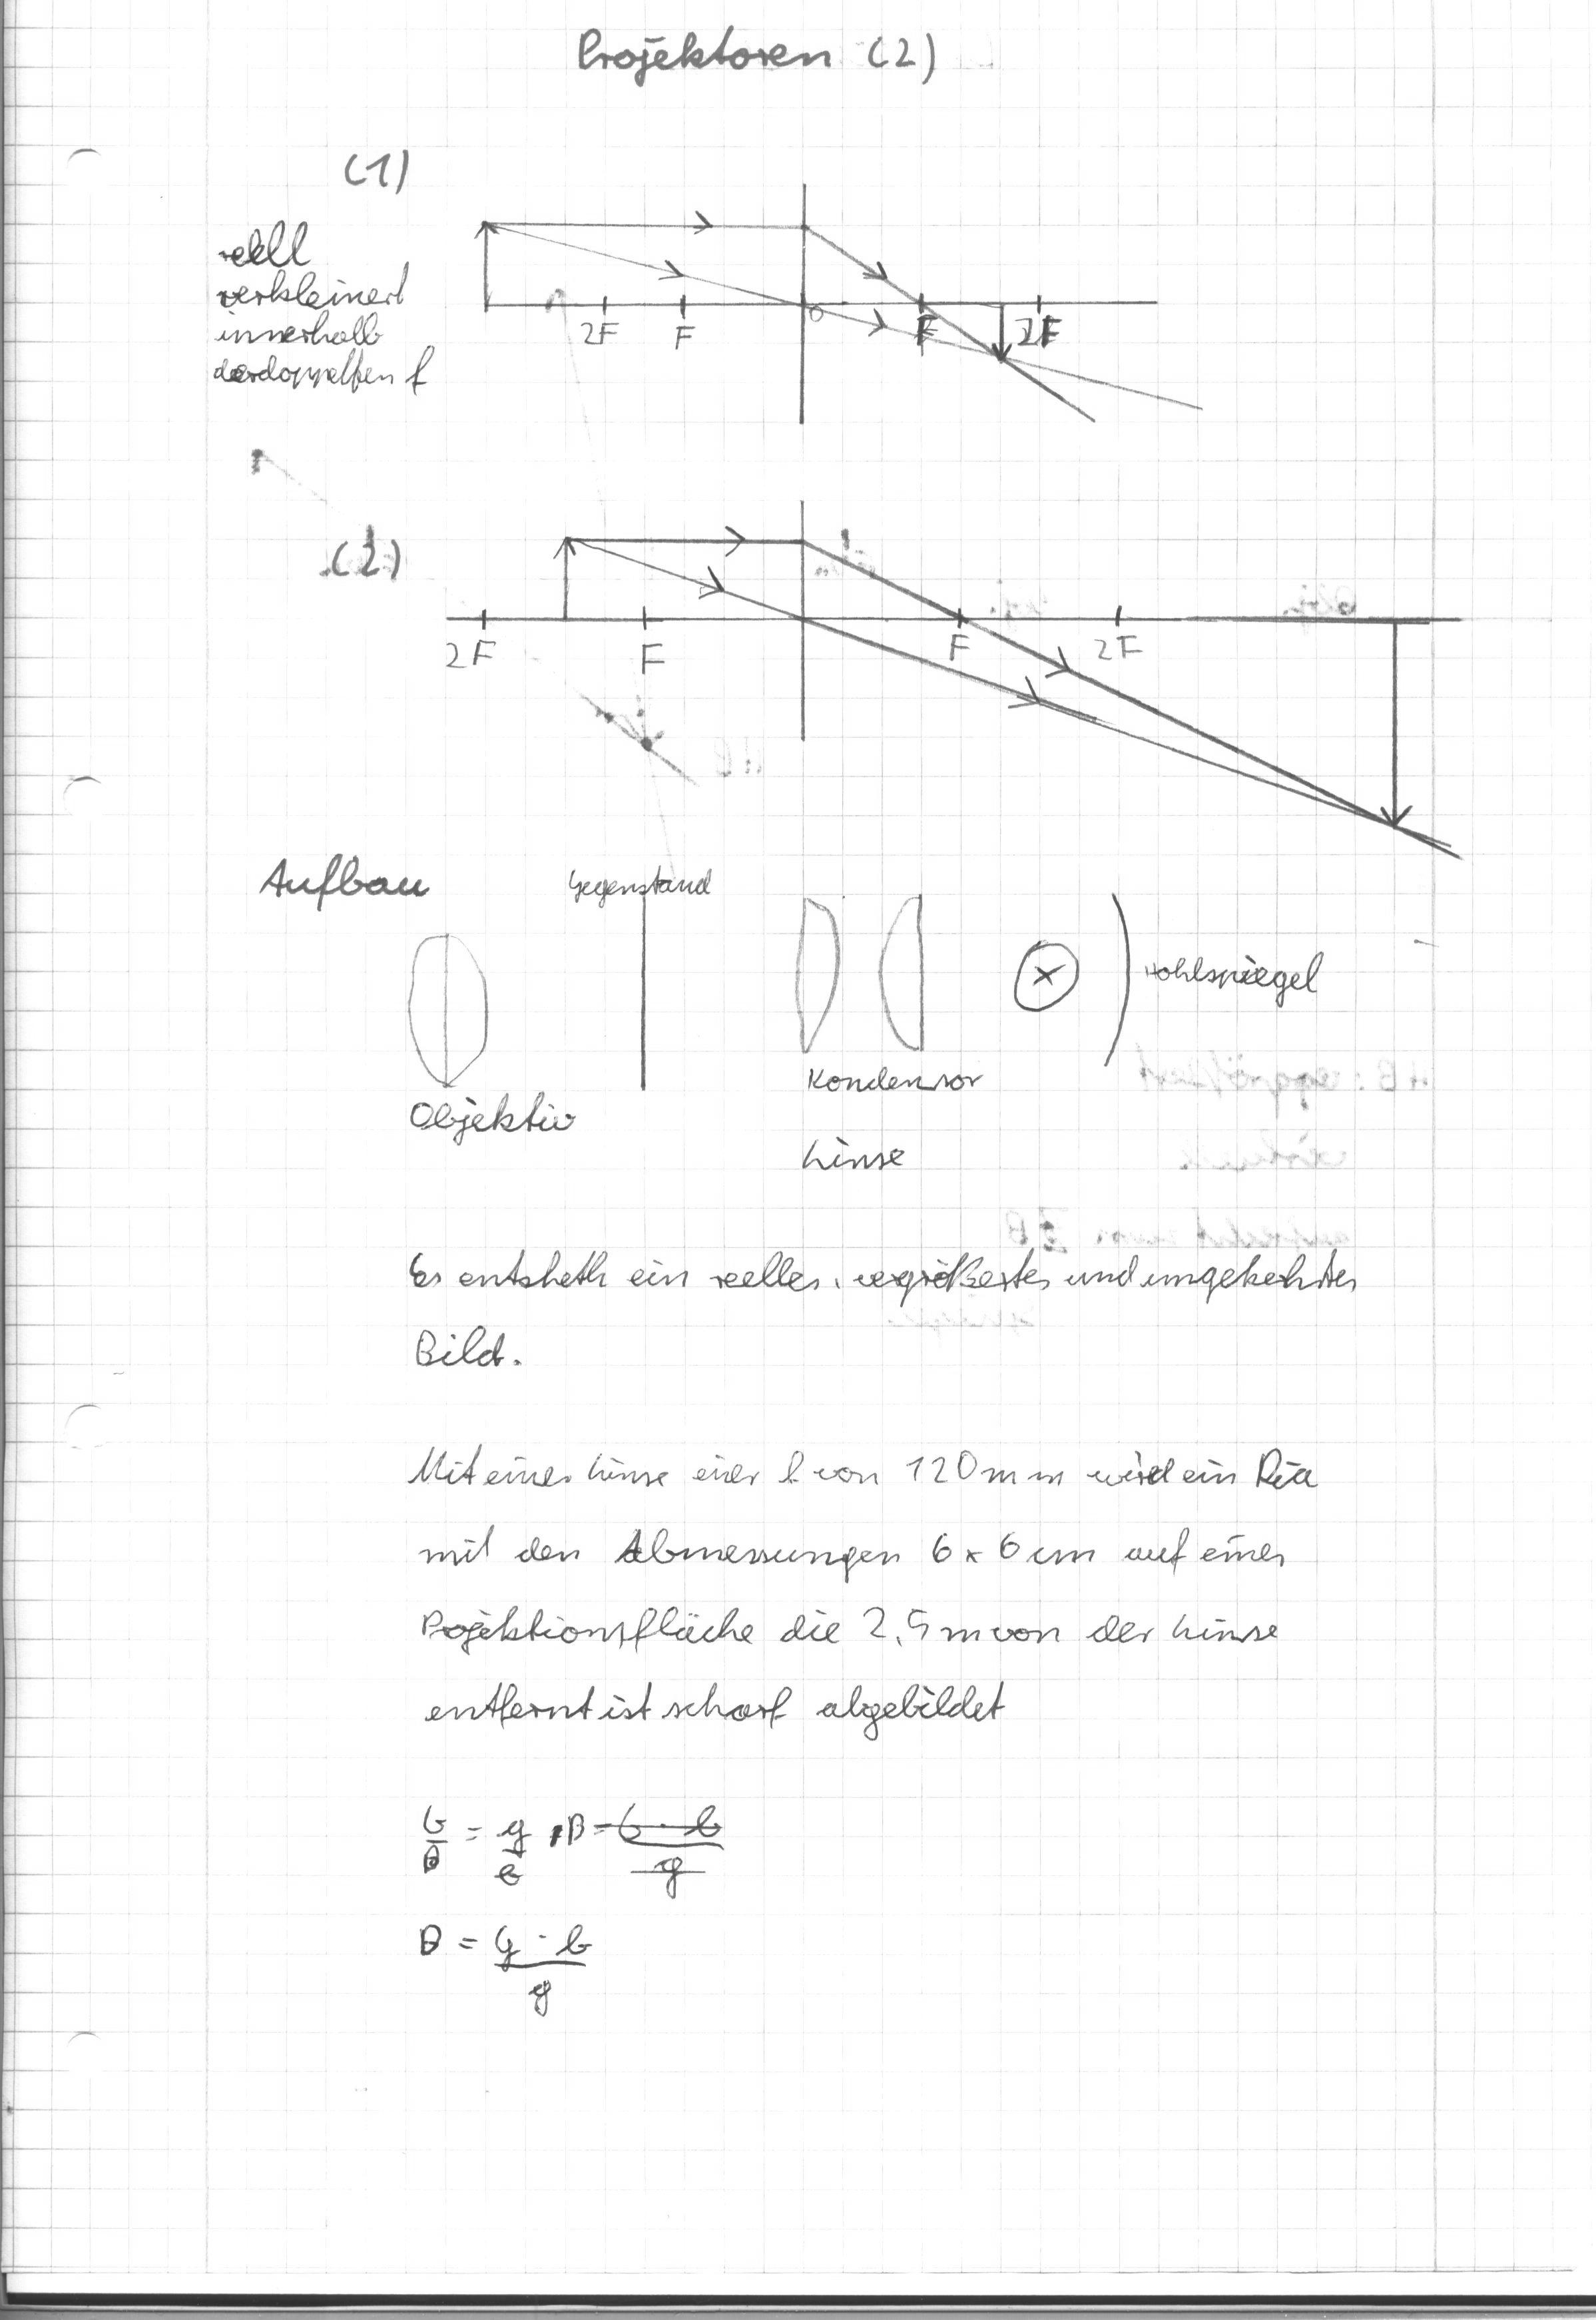 Projektoren (2)
(1)
reell
verkleinert
innerhalb
der doppelten f
2F F O F 2F
(2)
2F F F 2F
Aufbau
Gegenstand
Hohlspiegel
Kondensor
Objektiv
Linse
Es entsheth ein reelles, vergrößertes und umgekehrtes
Bild.
Mit einer Linse einer f von 120 mm wird ein Dia
mit den Abmessungen 6 x 6 cm auf einer
Projektionsfläche die 2,5 m von der Linse
entfernt ist scharf abgebildet
G/B = g/b , B = G · b / g
B = G · b / g